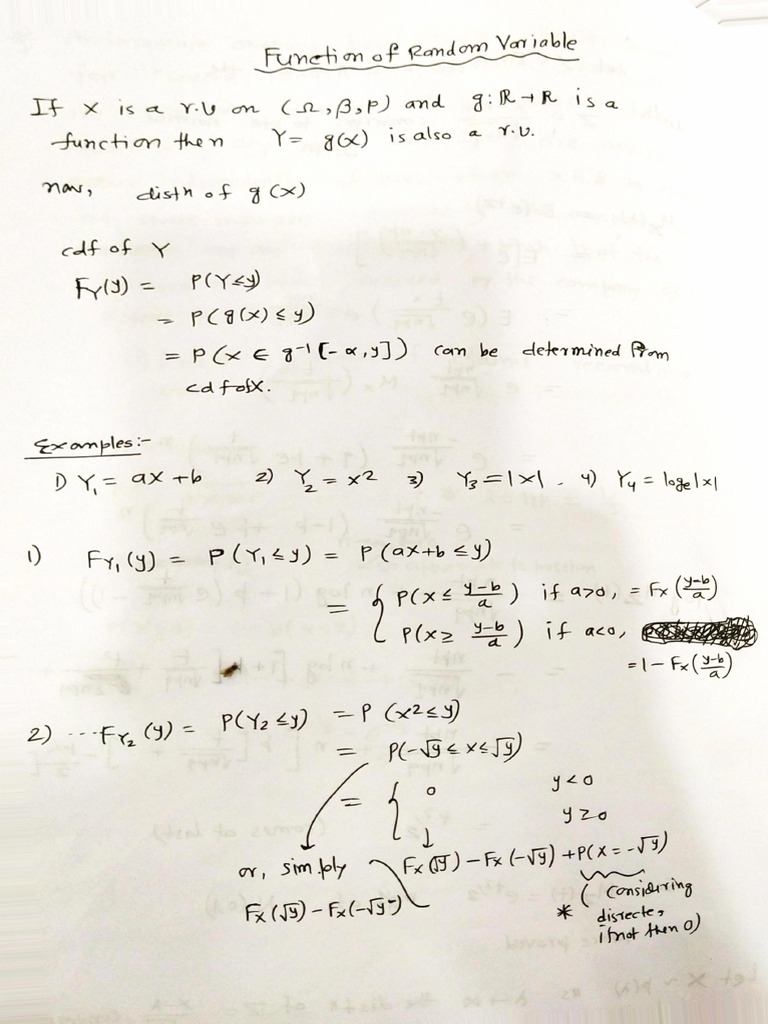 Function of Random Variable
If X is a r.v on (Ω, β, P) and g: ℝ→ℝ is a
function then Y = g(x) is also a r.v.
now, distn of g(x)
cdf of Y
F_Y(y) = P(Y≤y)
= P(g(x) ≤ y)
= P(x ∈ g⁻¹[-α, y]) can be determined from
cdf of X.
Examples:-
1) Y₁ = ax + b 2) Y₂ = x² 3) Y₃ = |x|. 4) Y₄ = logₑ|x|
1) F_Y₁(y) = P(Y₁ ≤ y) = P(ax+b ≤ y)
= { P(x ≤ (y-b)/a) if a>0, = F_X((y-b)/a)
P(x ≥ (y-b)/a) if a<0,
= 1 - F_X((y-b)/a)
2) ... F_Y₂(y) = P(Y₂ ≤ y) = P(x² ≤ y)
= P(-√y ≤ x ≤ √y)
= { 0 y < 0
y ≥ 0
or, simply F_X(√y) - F_X(-√y) + P(X = -√y)
F_X(√y) - F_X(-√y⁻)
* (Considering
disrecte,
if not then 0)